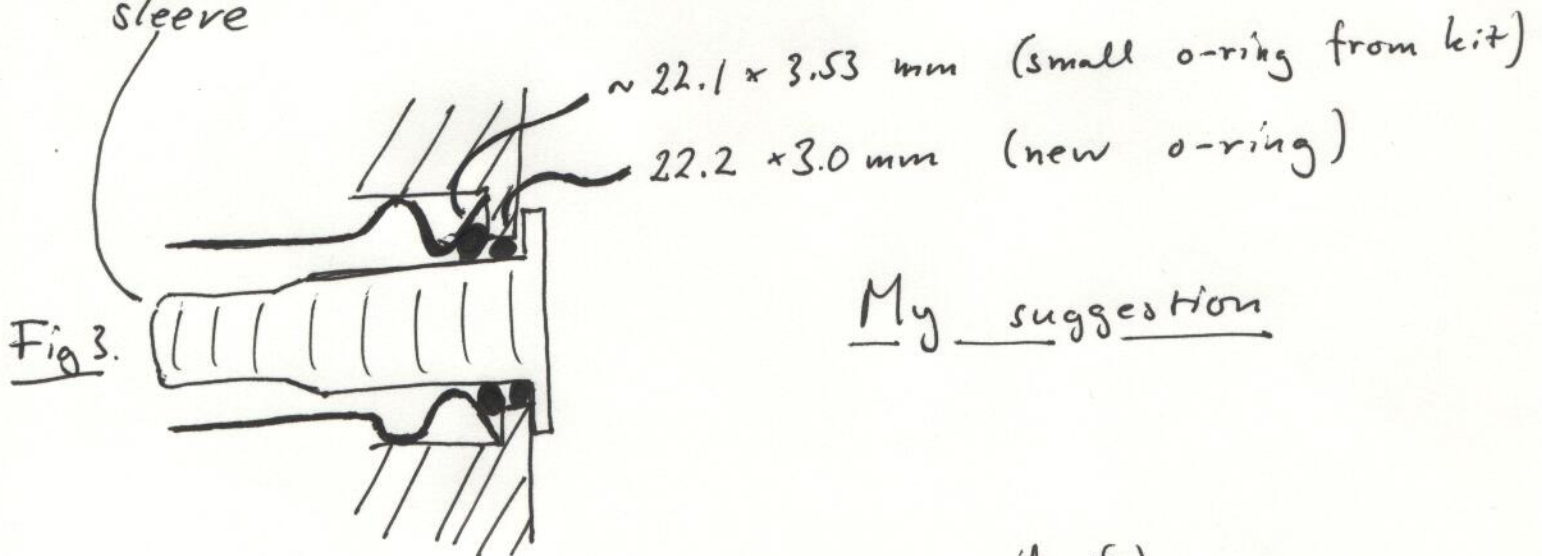 sleeve
~ 22.1 × 3.53 mm (small o-ring from kit)
22.2 × 3.0 mm (new o-ring)
My suggestion
Fig 3.